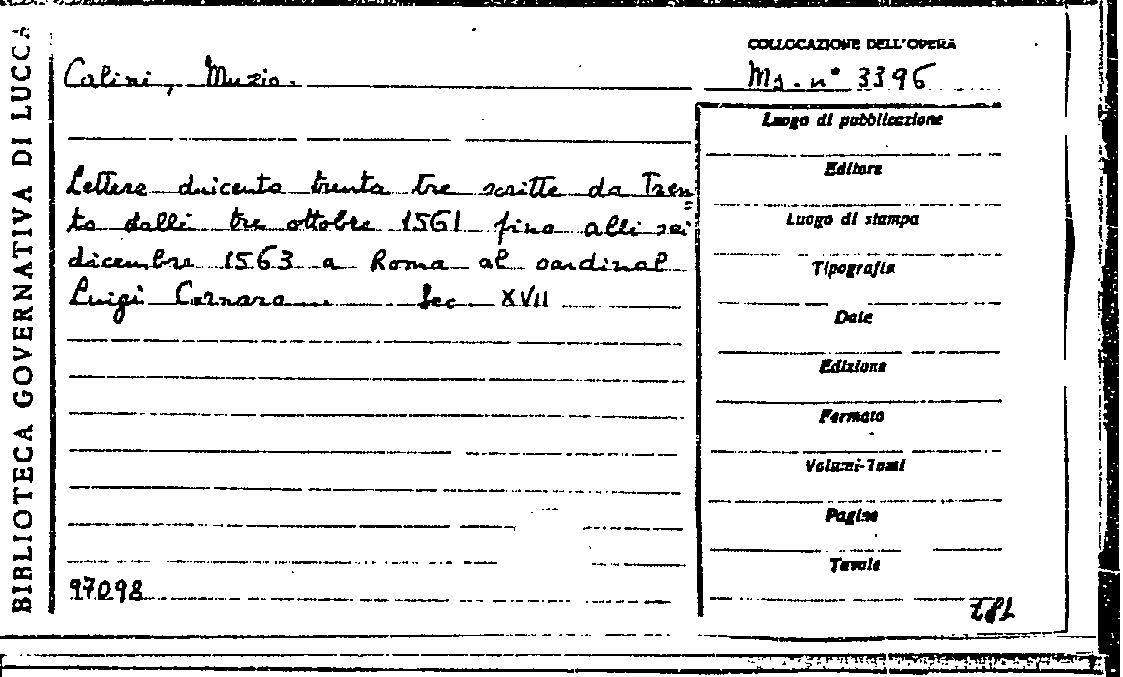 BIBLIOTECA GOVERNATIVA DI LUCCA
COLLOCAZIONE DELL'OPERA
Calini, Muzio.
Ms. n° 3396
Lettere duicento trenta tre scritte da Tren
to dalli tre ottobre 1561 fino alli sei
dicembre 1563 a Roma al cardinal
Luigi Cornaro. Sec XVII
Luogo di pubblicazione
Editore
Luogo di stampa
Tipografia
Date
Edizione
Formato
Volumi-Tomi
Pagine
Tavole
97098